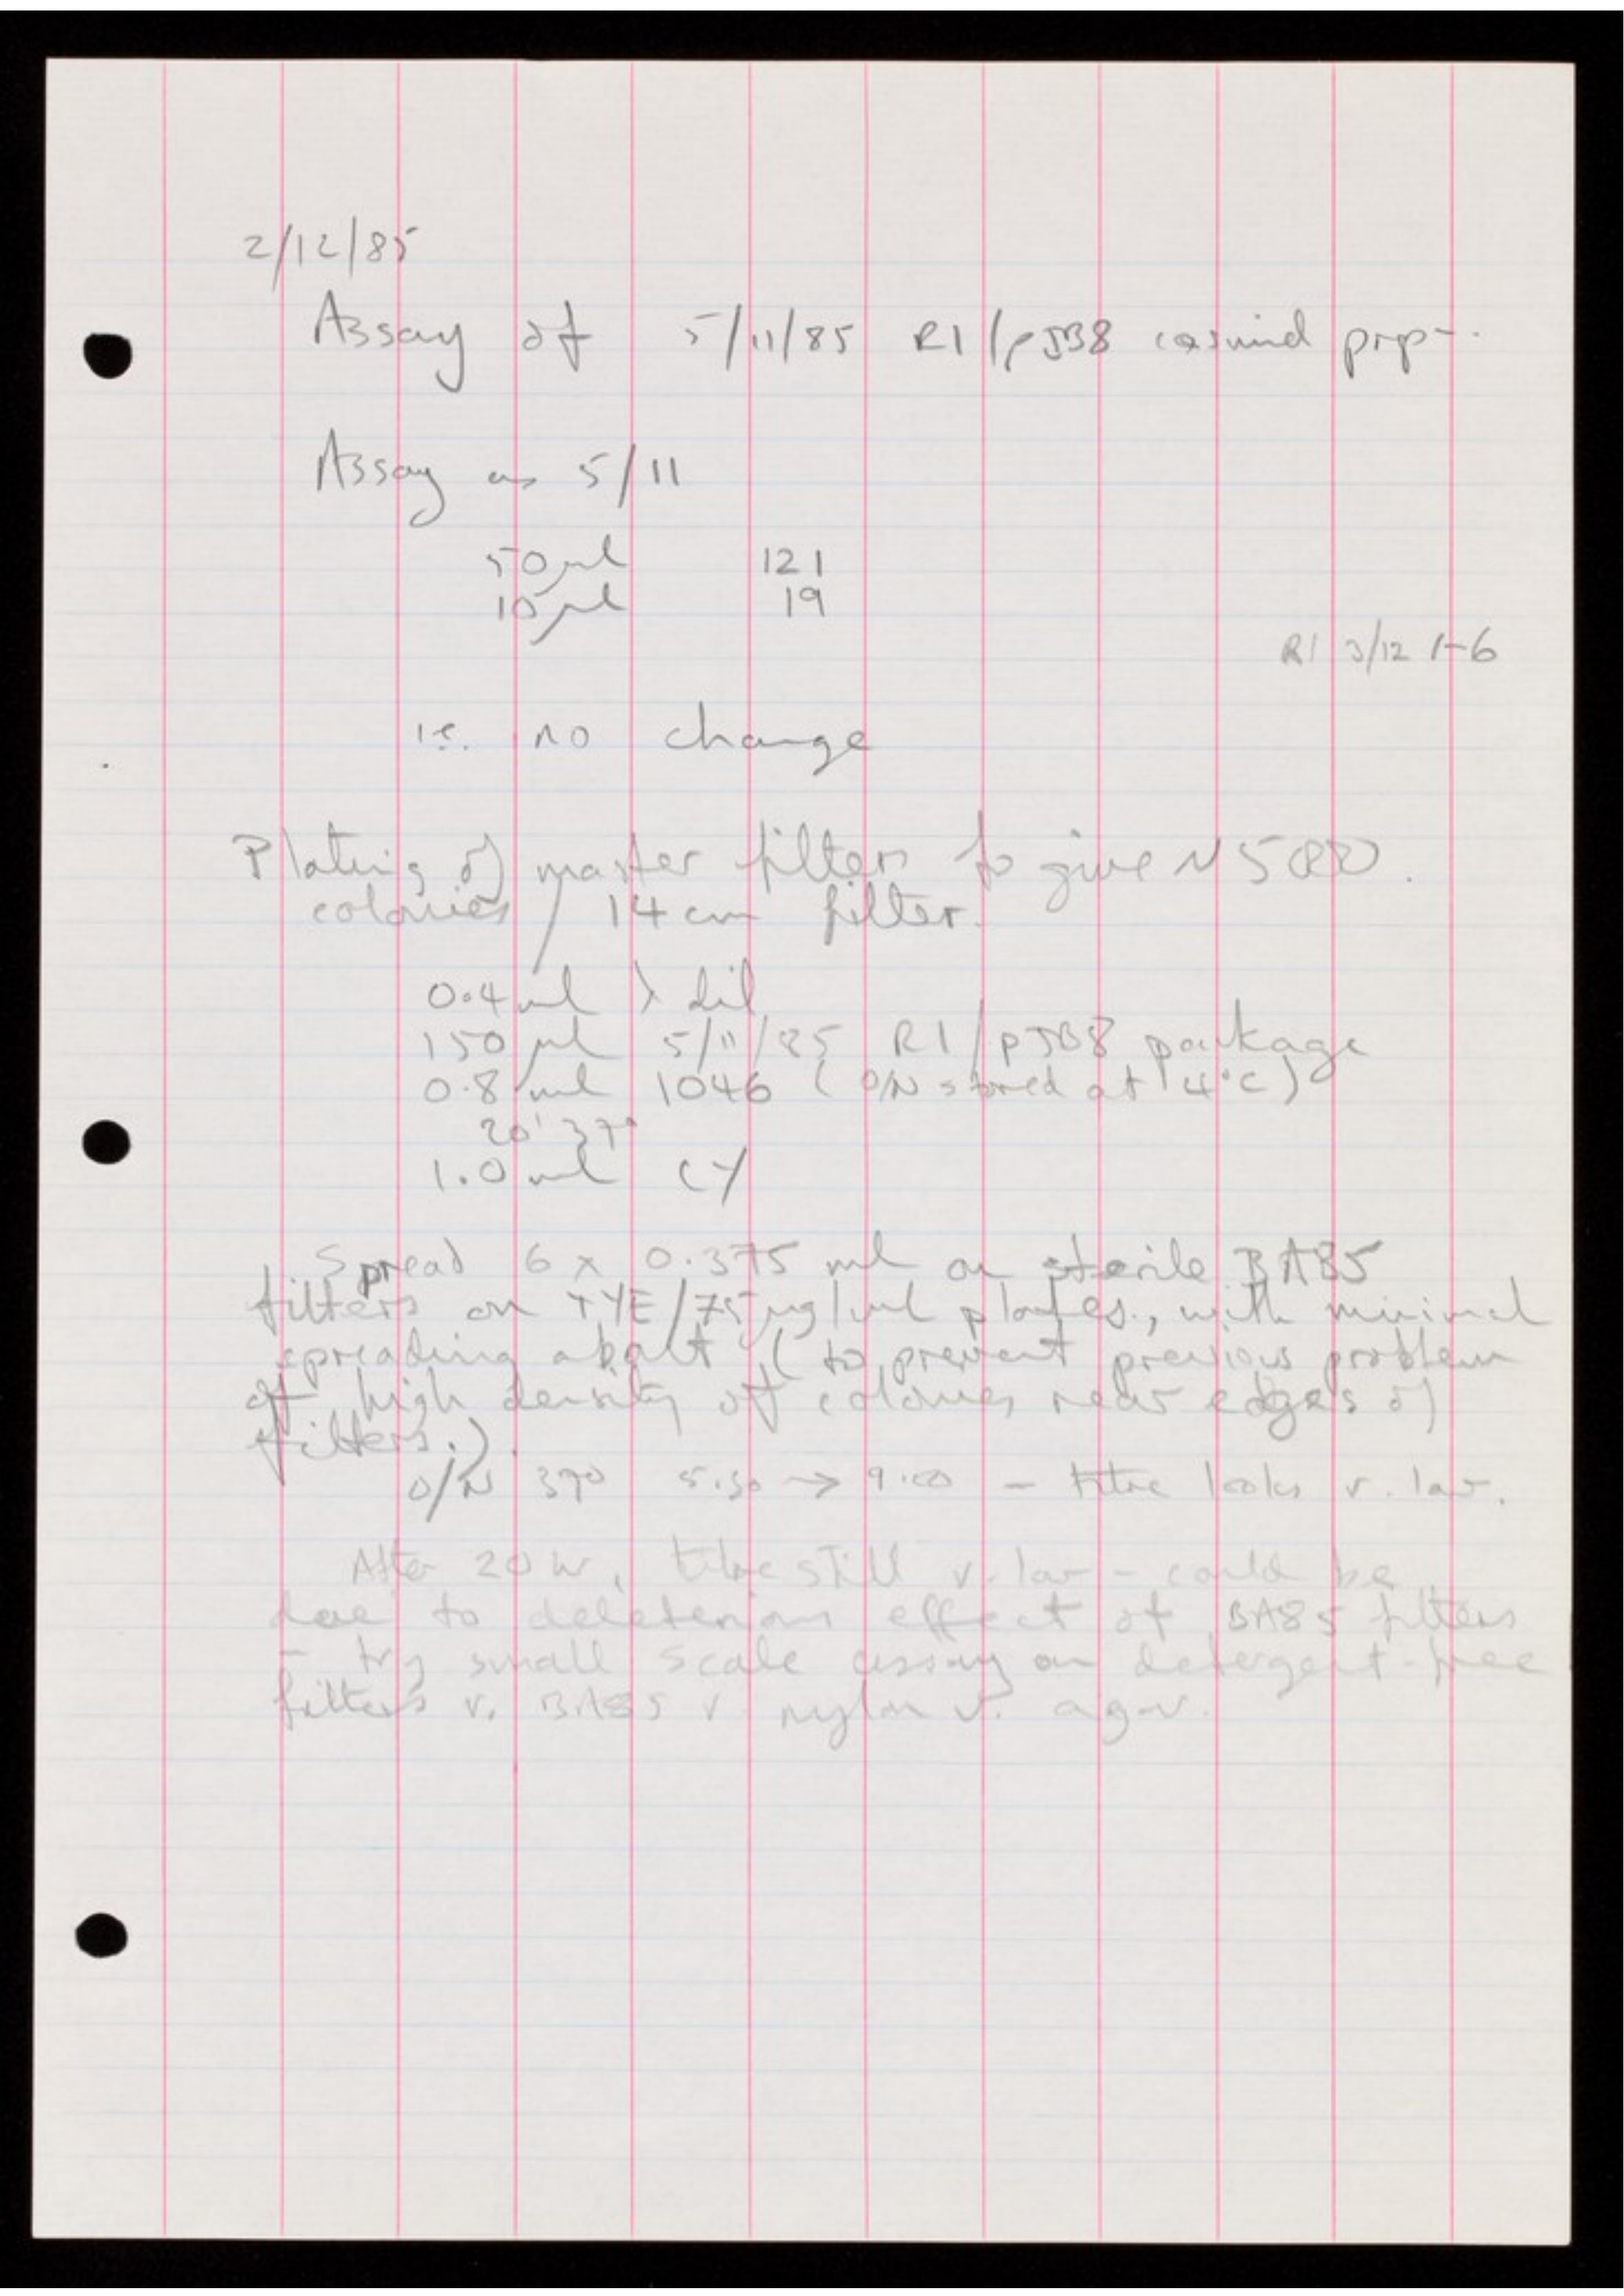 2/12/85
Assay of 5/11/85 R1/pJB8 cosmid prpn.
Assay as 5/11
50µl 121
10µl 19
R1 3/12 1-6
i.e. no change
Plating of master filters to give ~ 5000
colonies / 14 cm filter.
0.4 ml λ dil
150 µl 5/11/85 R1/pJB8 package
0.8 ml 1046 (O/N stored at 4°C)
20' 37°
1.0 ml CY
Spread 6 x 0.375 ml on sterile BA85
filters on TYE/75µg/ml plates, with minimal
spreading about (to prevent previous problem
of high density of colonies near edges of
filters.).
O/N 37° 5.30 → 9.00 - titre looks v. low.
After 20 hr, titre still v. low - could be
due to deleterious effect of BA85 filters
- try small scale assay on detergent-free
filters v. BA85 v. nylon v. agar.